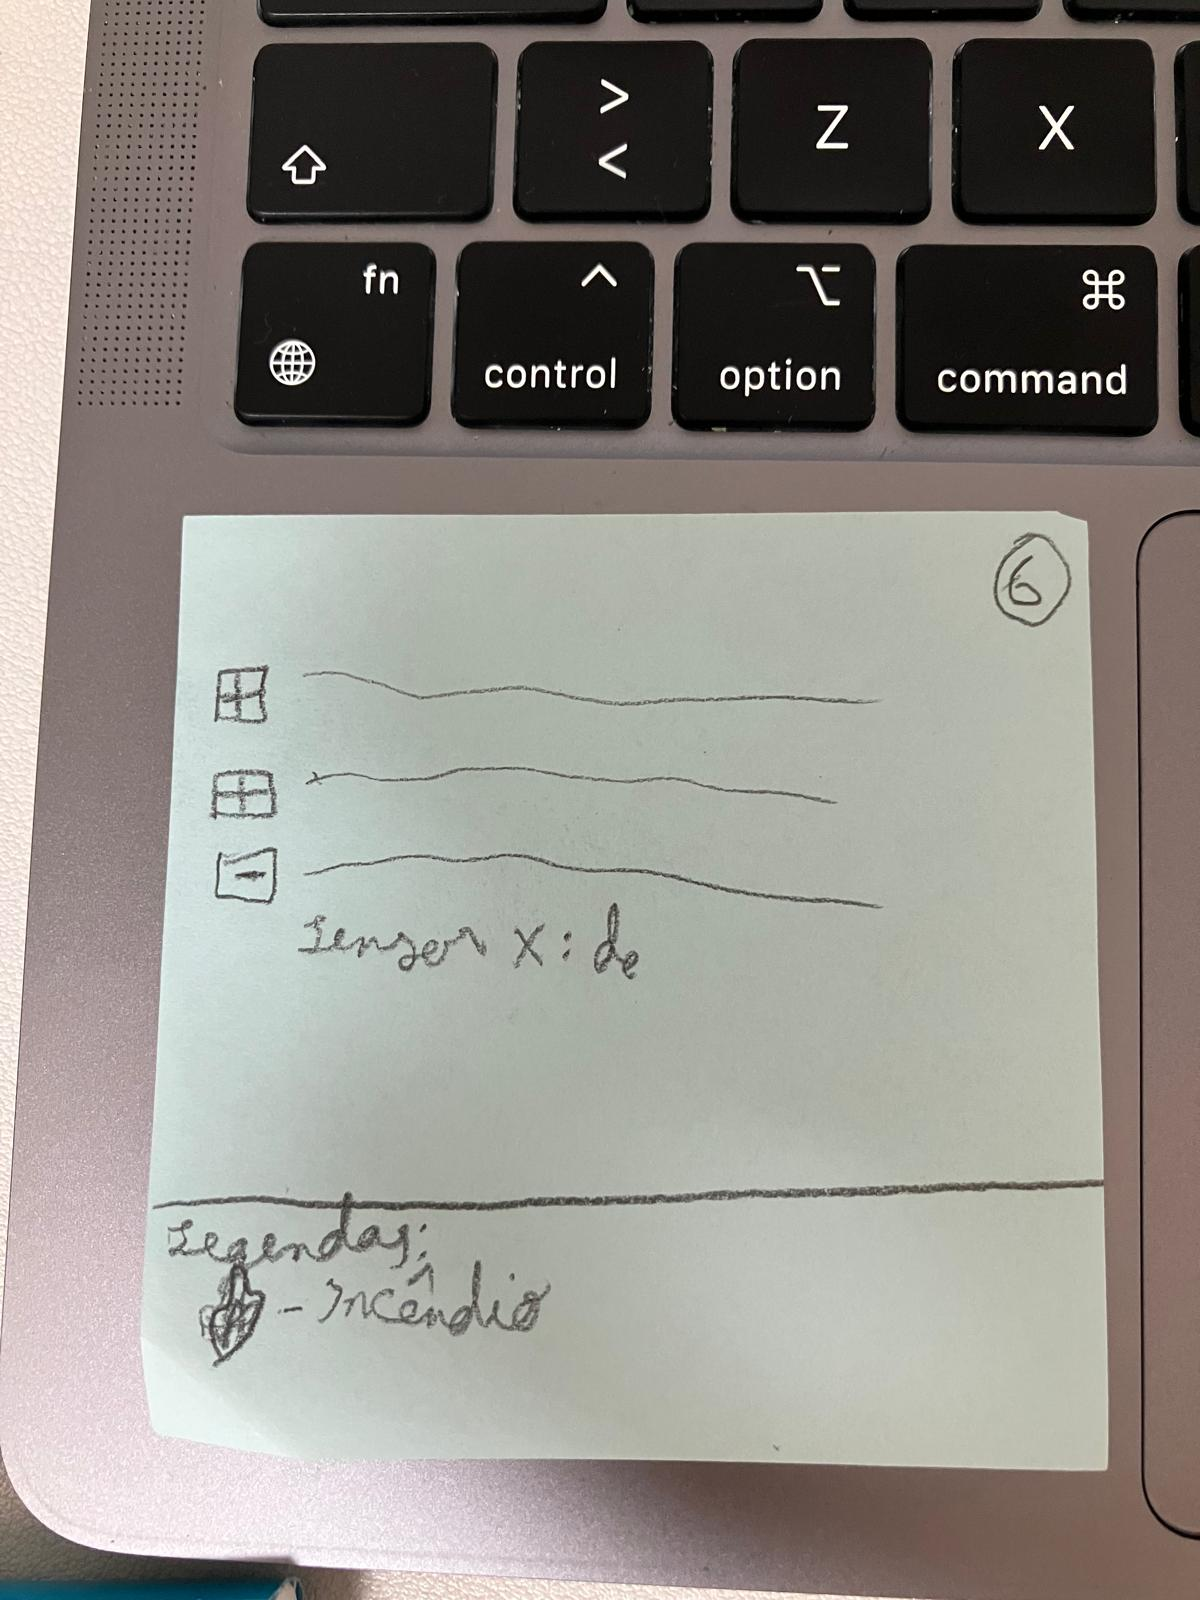 >
<
Z
X
fn
^
control
⌥
option
⌘
command
6
Sensor X: de
Legendas:
- Incêndio